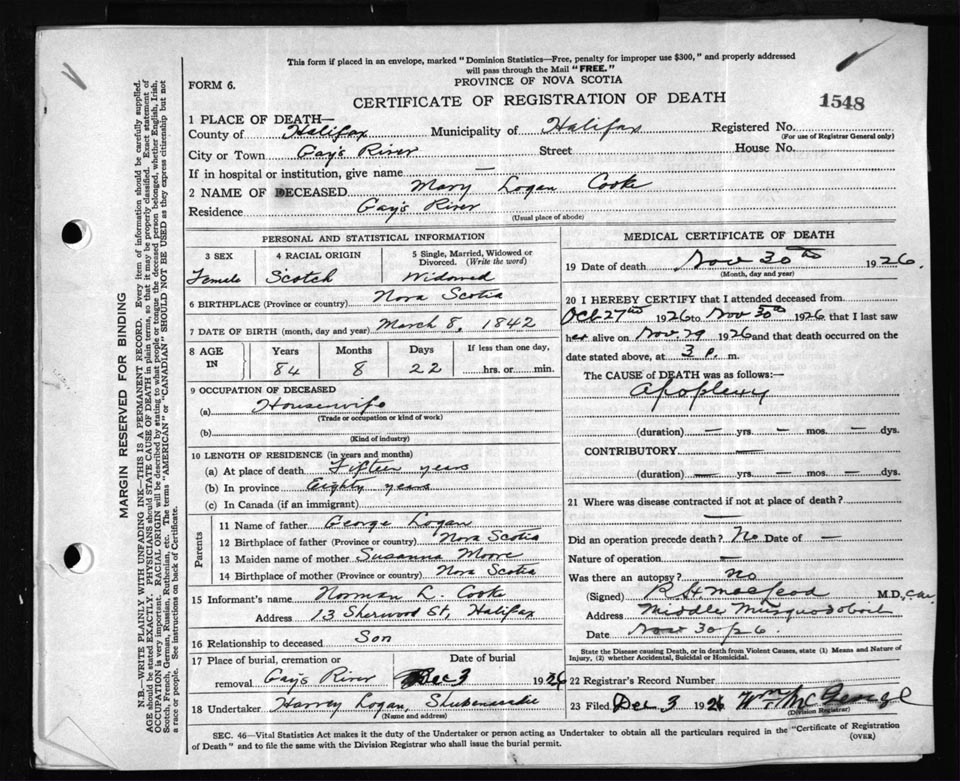 This form if placed in an envelope, marked "Dominion Statistics—Free, penalty for improper use $300," and properly addressed
will pass through the Mail "FREE."
FORM 6.
PROVINCE OF NOVA SCOTIA
CERTIFICATE OF REGISTRATION OF DEATH
1548
1 PLACE OF DEATH—
County of Halifax Municipality of Halifax Registered No.
(For use of Registrar General only)
City or Town Gay's River Street House No.
If in hospital or institution, give name —
2 NAME OF DECEASED Mary Logan Cook
Residence Gay's River
(Usual place of abode)
PERSONAL AND STATISTICAL INFORMATION
3 SEX Female
4 RACIAL ORIGIN Scotch
5 Single, Married, Widowed or Divorced. (Write the word) Widowed
6 BIRTHPLACE (Province or country) Nova Scotia
7 DATE OF BIRTH (month, day and year) March 8, 1842
8 AGE IN Years 84 Months 8 Days 22 If less than one day, hrs. or min.
9 OCCUPATION OF DECEASED
(a) Housewife
(Trade or occupation or kind of work)
(b)
(Kind of industry)
10 LENGTH OF RESIDENCE (in years and months)
(a) At place of death Fifteen years
(b) In province Eighty years
(c) In Canada (if an immigrant)
Parents
11 Name of father George Logan
12 Birthplace of father (Province or country) Nova Scotia
13 Maiden name of mother Susanna Moore
14 Birthplace of mother (Province or country) Nova Scotia
15 Informant's name Norman L. Cook
Address 13 Sherwood St, Halifax
16 Relationship to deceased Son
17 Place of burial, cremation or removal Gay's River Date of burial Dec 3 1926
18 Undertaker Harvey Logan, Shubenacadie
(Name and address)
MEDICAL CERTIFICATE OF DEATH
19 Date of death Nov 30th 1926.
(Month, day and year)
20 I HEREBY CERTIFY that I attended deceased from
Oct 27th 1926 to Nov 30th 1926 that I last saw
her alive on Nov. 29 1926 and that death occurred on the
date stated above, at 3 p. m.
The CAUSE of DEATH was as follows:—
Apoplexy
(duration) — yrs. — mos. — dys.
CONTRIBUTORY —
(duration) — yrs. — mos. — dys.
21 Where was disease contracted if not at place of death?
—
Did an operation precede death? No Date of —
Nature of operation —
Was there an autopsy? no
(Signed) MacLeod M.D., C.M.
Address Middle Musquodoboit
Date Nov 30/26.
State the Disease causing Death, or in death from Violent Causes, state (1) Means and Nature of
Injury, (2) whether Accidental, Suicidal or Homicidal.
22 Registrar's Record Number
23 Filed Dec 3 1926 Wm
(Division Registrar)
SEC. 46—Vital Statistics Act makes it the duty of the Undertaker or person acting as Undertaker to obtain all the particulars required in the "Certificate of Registration
of Death" and to file the same with the Division Registrar who shall issue the burial permit.
(OVER)
MARGIN RESERVED FOR BINDING
N.B.—WRITE PLAINLY WITH UNFADING INK—THIS IS A PERMANENT RECORD. Every item of information should be carefully supplied.
AGE should be stated EXACTLY. PHYSICIANS should STATE CAUSE OF DEATH in plain terms, so that it may be properly classified. Exact statement of
OCCUPATION is very important. RACIAL ORIGIN will be described by stating to what people or tongue the deceased person belonged, whether English, Irish,
Scotch, French, German, Russian, Ruthenian, etc. The terms "AMERICAN" or "CANADIAN" SHOULD NOT BE USED as they express citizenship but not
a race or people. See instructions on back of Certificate.